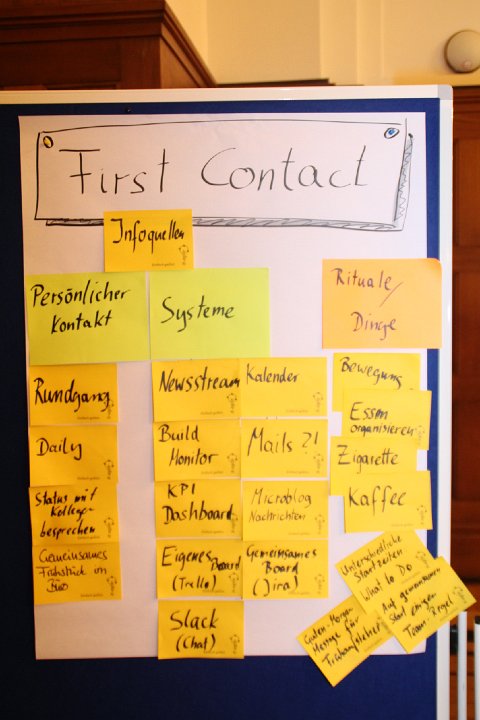 First Contact
Infoquellen
Persönlicher
Kontakt
Systeme
Rituale/
Dinge
Rundgang
Daily
Status mit
Kollegen
besprechen
Gemeinsames
Frühstück im
Büro
Newsstream
Build
Monitor
KPI
Dashboard
Eigenes Board
(Trello)
Slack
(Chat)
Kalender
Mails ?!
Microblog
Nachrichten
Gemeinsames
Board
(Jira)
Bewegung
Essen
organisieren
Zigarette
Kaffee
Unterschiedliche
Startzeiten
What to Do
Auf gemeinsamen
Start einigen
Team-Regel
Guten-Morgen
Message für
Frühaufsteher